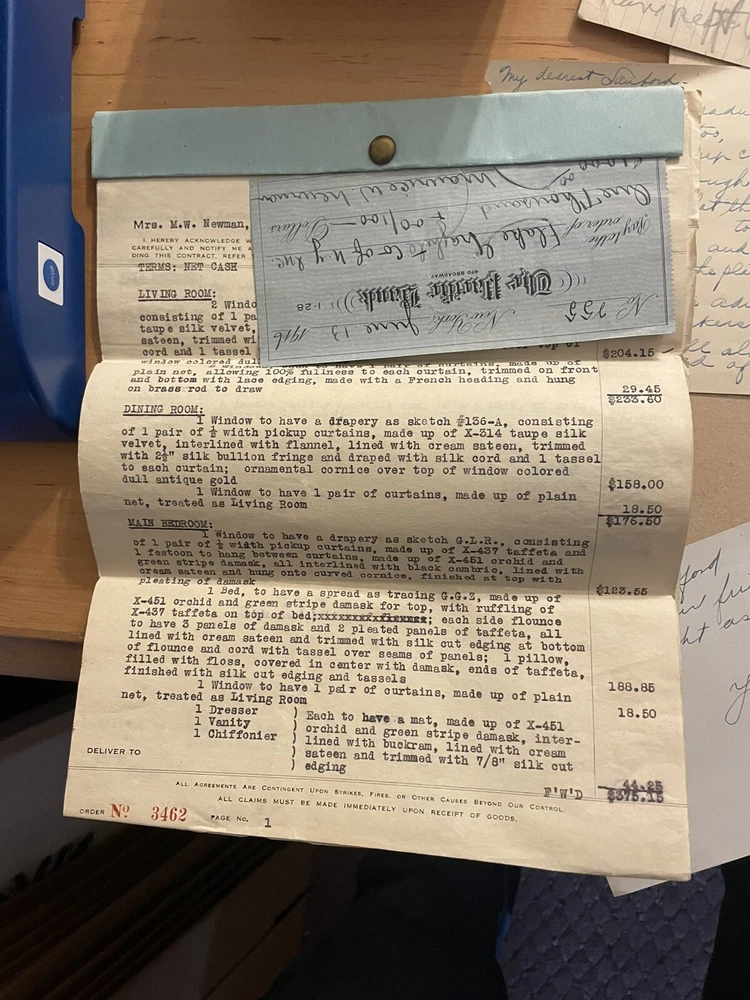 My dearest Sanford-
Mrs. M.W. Newman,
I HEREBY ACKNOWLEDGE W
CAREFULLY AND NOTIFY ME A
DING THIS CONTRACT. REFER
TERMS: NET CASH
LIVING ROOM:
2 Windo
consisting of 1 pai
taupe silk velvet,
sateen, trimmed wi
cord and 1 tassel
window colored dul
$204.15
plain net, allowing 100% fullness to each curtain, trimmed on front
and bottom with lace edging, made with a French heading and hung
on brass rod to draw 29.45
$233.60
No. 255
New York, June 13 1916
The Pacific Bank
470 BROADWAY
1-28
Pay to the order of
One Thousand + 00/100 Dollars
$1000 00
Maurice W. Newman
DINING ROOM:
1 Window to have a drapery as sketch #136-A, consisting
of 1 pair of ½ width pickup curtains, made up of X-314 taupe silk
velvet, interlined with flannel, lined with cream sateen, trimmed
with 2½" silk bullion fringe and draped with silk cord and 1 tassel
to each curtain; ornamental cornice over top of window colored
dull antique gold $158.00
1 Window to have 1 pair of curtains, made up of plain
net, treated as Living Room 18.50
$176.50
MAIN BEDROOM:
1 Window to have a drapery as sketch G.L.R., consisting
of 1 pair of ½ width pickup curtains, made up of X-437 taffeta and
1 festoon to hang between curtains, made up of X-451 orchid and
green stripe damask, all interlined with black cambric, lined with
cream sateen and hung onto curved cornice, finished at top with
pleating of damask $123.55
1 Bed, to have a spread as tracing G.G.Z, made up of
X-451 orchid and green stripe damask for top, with ruffling of
X-437 taffeta on top of bed; each side flounce
to have 3 panels of damask and 2 pleated panels of taffeta, all
lined with cream sateen and trimmed with silk cut edging at bottom
of flounce and cord with tassel over seams of panels; 1 pillow,
filled with floss, covered in center with damask, ends of taffeta,
finished with silk cut edging and tassels 188.85
1 Window to have 1 pair of curtains, made up of plain
net, treated as Living Room 18.50
1 Dresser ) Each to have a mat, made up of X-451
1 Vanity ) orchid and green stripe damask, inter-
1 Chiffonier ) lined with buckram, lined with cream
sateen and trimmed with 7/8" silk cut
edging 44.25
DELIVER TO
F'W'D $375.15
ALL AGREEMENTS ARE CONTINGENT UPON STRIKES, FIRES, OR OTHER CAUSES BEYOND OUR CONTROL.
ALL CLAIMS MUST BE MADE IMMEDIATELY UPON RECEIPT OF GOODS.
ORDER No 3462 PAGE No. 1